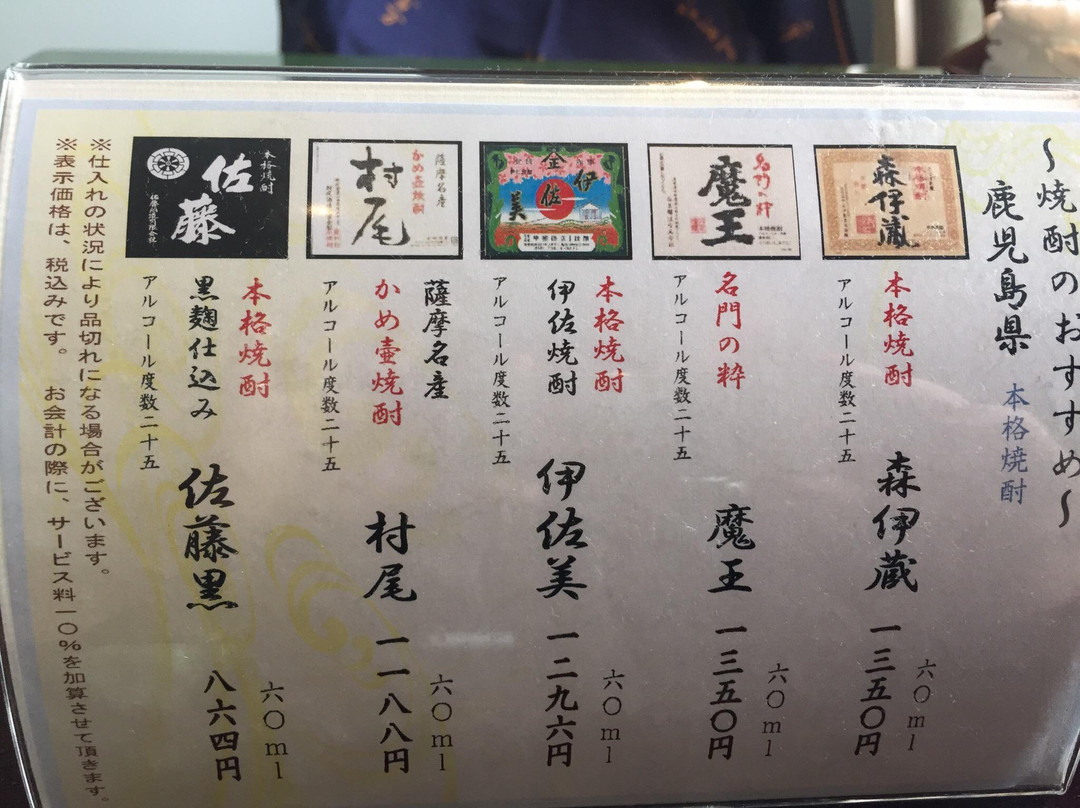 〜焼酎のおすすめ〜
鹿児島県 本格焼酎
森伊蔵
本格焼酎
森伊蔵 一三五〇円
六〇ml
アルコール度数二十五
名門の粋
魔王
名門の粋
魔王 一三五〇円
六〇ml
アルコール度数二十五
金
伊佐美
本格焼酎
伊佐焼酎
伊佐美 一二九六円
六〇ml
アルコール度数二十五
薩摩名産
かめ壺焼酎
村尾
薩摩名産
かめ壺焼酎
村尾 一一八八円
六〇ml
アルコール度数二十五
本格焼酎
佐藤
本格焼酎
黒麹仕込み
佐藤黒 八六四円
六〇ml
アルコール度数二十五
※仕入れの状況により品切れになる場合がございます。
※表示価格は、税込みです。 お会計の際に、サービス料一〇%を加算させて頂きます。